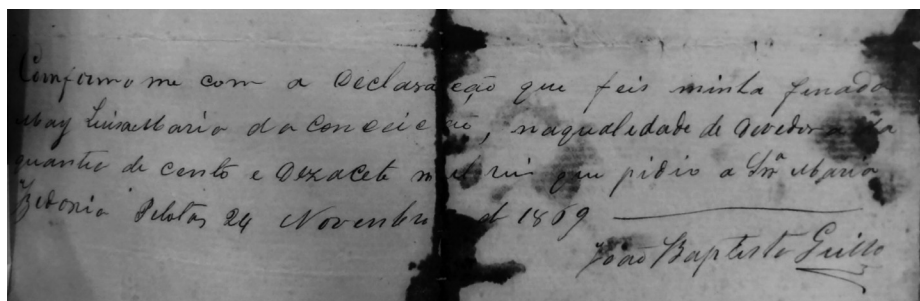 Comformome com a Declaração que feis minha finada
May Luisa Maria da Conceição, naqualidade de devedora da
quantia de cento e dezacete mil reis que pidio a Snrª Maria
Pelotas 24 Novembro d 1869
João Baptista